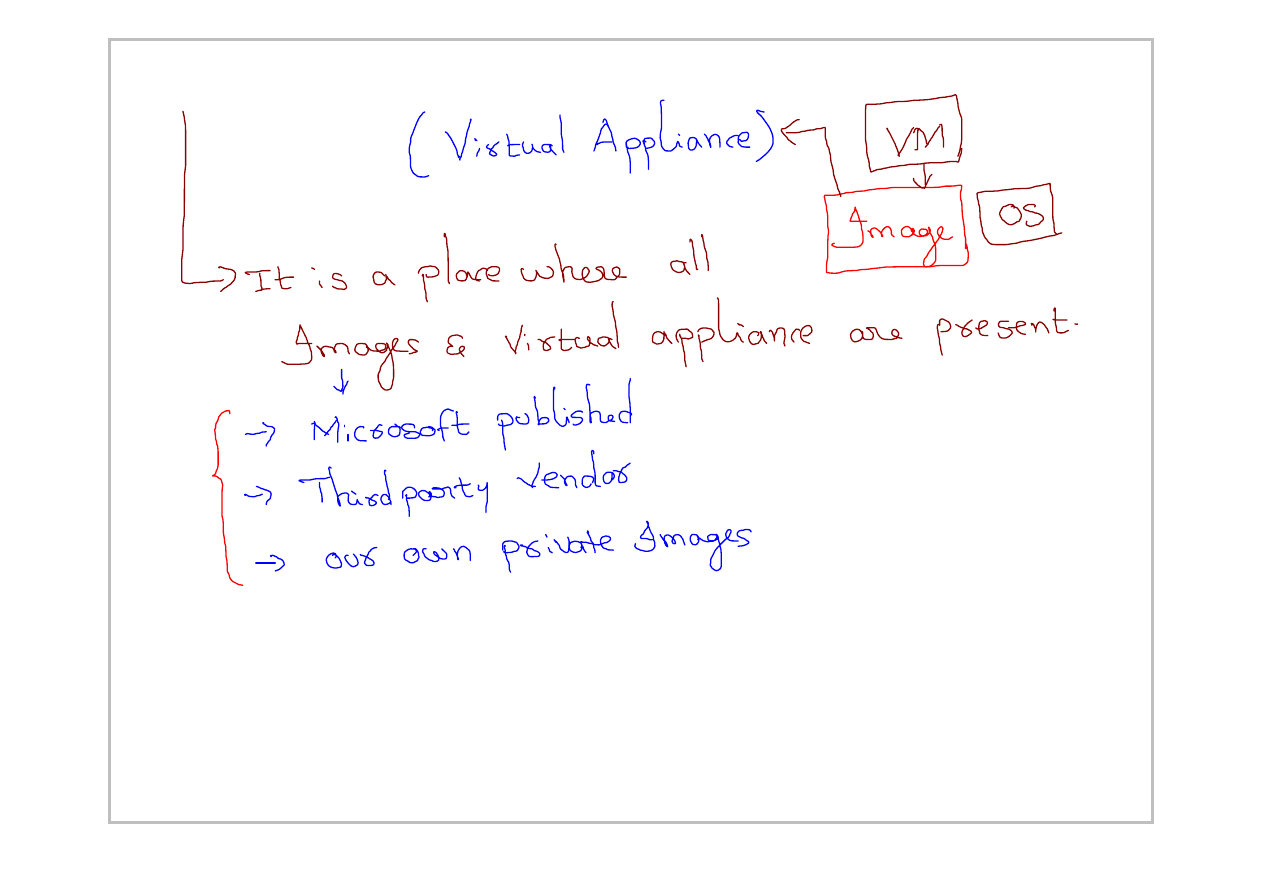 (Virtual Appliance)
VM
Image
OS
It is a place where all
Images & Virtual appliance are present.
→ Microsoft published
→ Third party vendor
→ our own private Images